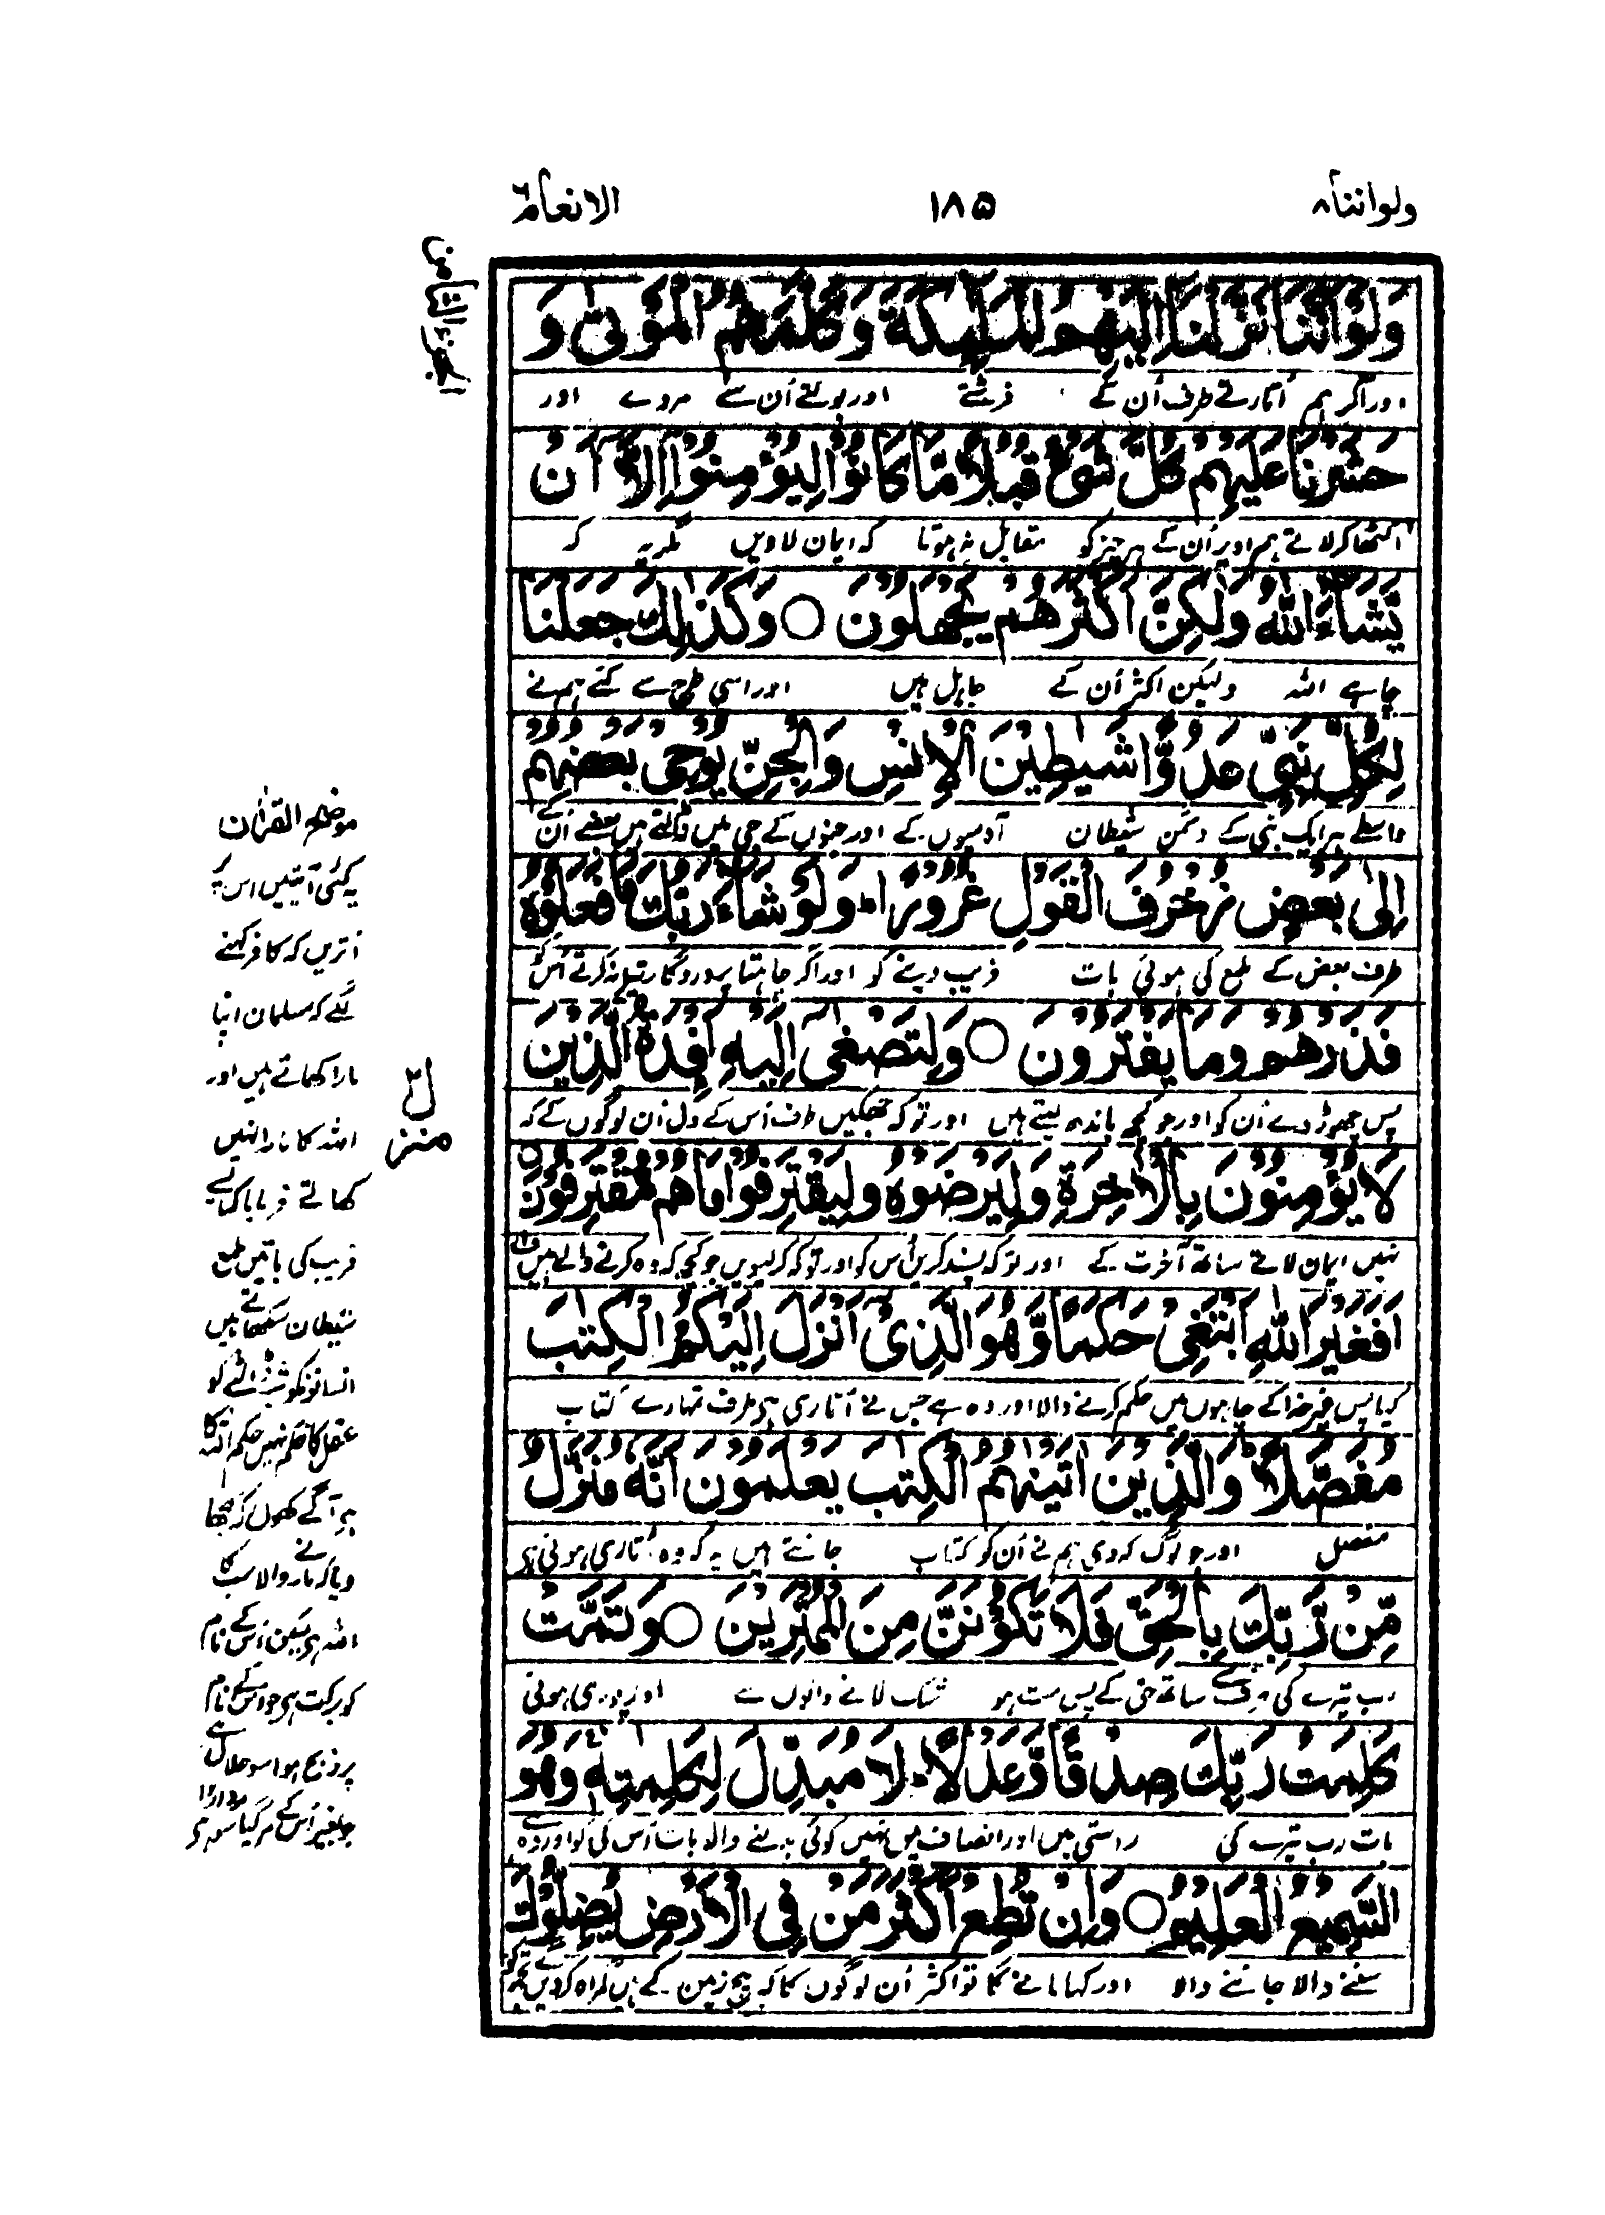 ولواننا ۸
۱۸۵
الانعام ۶
الجزء الثامن
وَلَوْ اَنَّنَا نَزَّلْنَاۤ اِلَيْهِمُ الْمَلٰٓئِكَةَ وَكَلَّمَهُمُ الْمَوْتٰى وَ
اور اگر ہم اُتارتے طرف اُن کے فرشتے اور بولتے اُن سے مردے اور
حَشَرْنَا عَلَيْهِمْ كُلَّ شَيْءٍ قُبُلًا مَّا كَانُوْا لِيُؤْمِنُوْۤا اِلَّاۤ اَنْ
اکٹھا کر لاتے ہم اوپر اُن کے ہر چیز کو مقابل نہ ہوتا کہ ایمان لاویں مگر یہ کہ
يَّشَآءَ اللّٰهُ وَلٰكِنَّ اَكْثَرَهُمْ يَجْهَلُوْنَ ○ وَكَذٰلِكَ جَعَلْنَا
چاہے اللہ ولیکن اکثر اُن کے جاہل ہیں اور اسی طرح سے کئے ہم نے
لِكُلِّ نَبِيٍّ عَدُوًّا شَيٰطِيْنَ الْاِنْسِ وَالْجِنِّ يُوْحِيْ بَعْضُهُمْ
واسطے ہر ایک نبی کے دشمن شیطان آدمیوں کے اور جنوں کے جی میں ڈالتے ہیں بعضے اُن کے
اِلٰى بَعْضٍ زُخْرُفَ الْقَوْلِ غُرُوْرًا ؕ وَلَوْ شَآءَ رَبُّكَ مَا فَعَلُوْهُ
طرف بعض کے ملمع کی ہوئی بات فریب دینے کو اور اگر چاہتا پروردگار تیرا نہ کرتے اُس کو
فَذَرْهُمْ وَمَا يَفْتَرُوْنَ ○ وَلِتَصْغٰۤى اِلَيْهِ اَفْـِٕدَةُ الَّذِيْنَ
پس چھوڑ دے اُن کو اور جو کچھ باندھ لیتے ہیں اور تو کہ جھکیں طرف اُس کے دل اُن لوگوں کے کہ
لَا يُؤْمِنُوْنَ بِالْاٰخِرَةِ وَلِيَرْضَوْهُ وَلِيَقْتَرِفُوْا مَا هُمْ مُّقْتَرِفُوْنَ ○
نہیں ایمان لاتے ساتھ آخرت کے اور تو کہ پسند کریں اُس کو اور تو کہ کر لیویں جو کچھ کہ وہ کرنے والے ہیں
اَفَغَيْرَ اللّٰهِ اَبْتَغِيْ حَكَمًا وَّهُوَ الَّذِيْۤ اَنْزَلَ اِلَيْكُمُ الْكِتٰبَ
کیا پس غیر خدا کے چاہوں میں حکم کرنے والا اور وہ ہے جس نے اُتاری ہی طرف تمہارے کتاب
مُفَصَّلًا ؕ وَالَّذِيْنَ اٰتَيْنٰهُمُ الْكِتٰبَ يَعْلَمُوْنَ اَنَّهٗ مُنَزَّلٌ
مفصل اور جو لوگ کہ دی ہم نے اُن کو کتاب جانتے ہیں یہ کہ وہ اُتاری ہوئی ہی
مِّنْ رَّبِّكَ بِالْحَقِّ فَلَا تَكُوْنَنَّ مِنَ الْمُمْتَرِيْنَ ○ وَتَمَّتْ
رب تیرے کی طرف سے ساتھ حق کے پس مت ہو شک لانے والوں سے اور پوری ہوئی
كَلِمَتُ رَبِّكَ صِدْقًا وَّعَدْلًا ؕ لَا مُبَدِّلَ لِكَلِمٰتِهٖ وَهُوَ
بات رب تیرے کی راستی میں اور انصاف میں نہیں کوئی بدلنے والا بات اُس کی کو اور وہ ہے
السَّمِيْعُ الْعَلِيْمُ ○ وَاِنْ تُطِعْ اَكْثَرَ مَنْ فِي الْاَرْضِ يُضِلُّوْكَ
سننے والا جاننے والا اور کہا مانے گا تو اکثر اُن لوگوں کا کہ بیچ زمین کے ہیں گمراہ کر دیں گے تجھ کو
منزل ۲
موضح القرآن
یہ کئی آیتیں اس پر
اُتریں کہ کافر کہنے
لگے کہ مسلمان اپنا
مارا کھاتے ہیں اور
اللہ کا مارا نہیں
کھاتے فرمایا کہ ایسے
فریب کی باتیں ملمع
شیطان سکھاتے ہیں
انسانوں کو شبہ ڈالنے کو
عقل کا حکم نہیں حکم اللہ کا
ہی آگے کھول کر سمجھا
دیا کہ مارنے والا سب کا
اللہ ہی لیکن اُس کے نام
کو برکت ہی جو اُس کے نام
پر ذبح ہوا سو حلال ہے
جو بغیر اُس کے مر گیا سو مردار